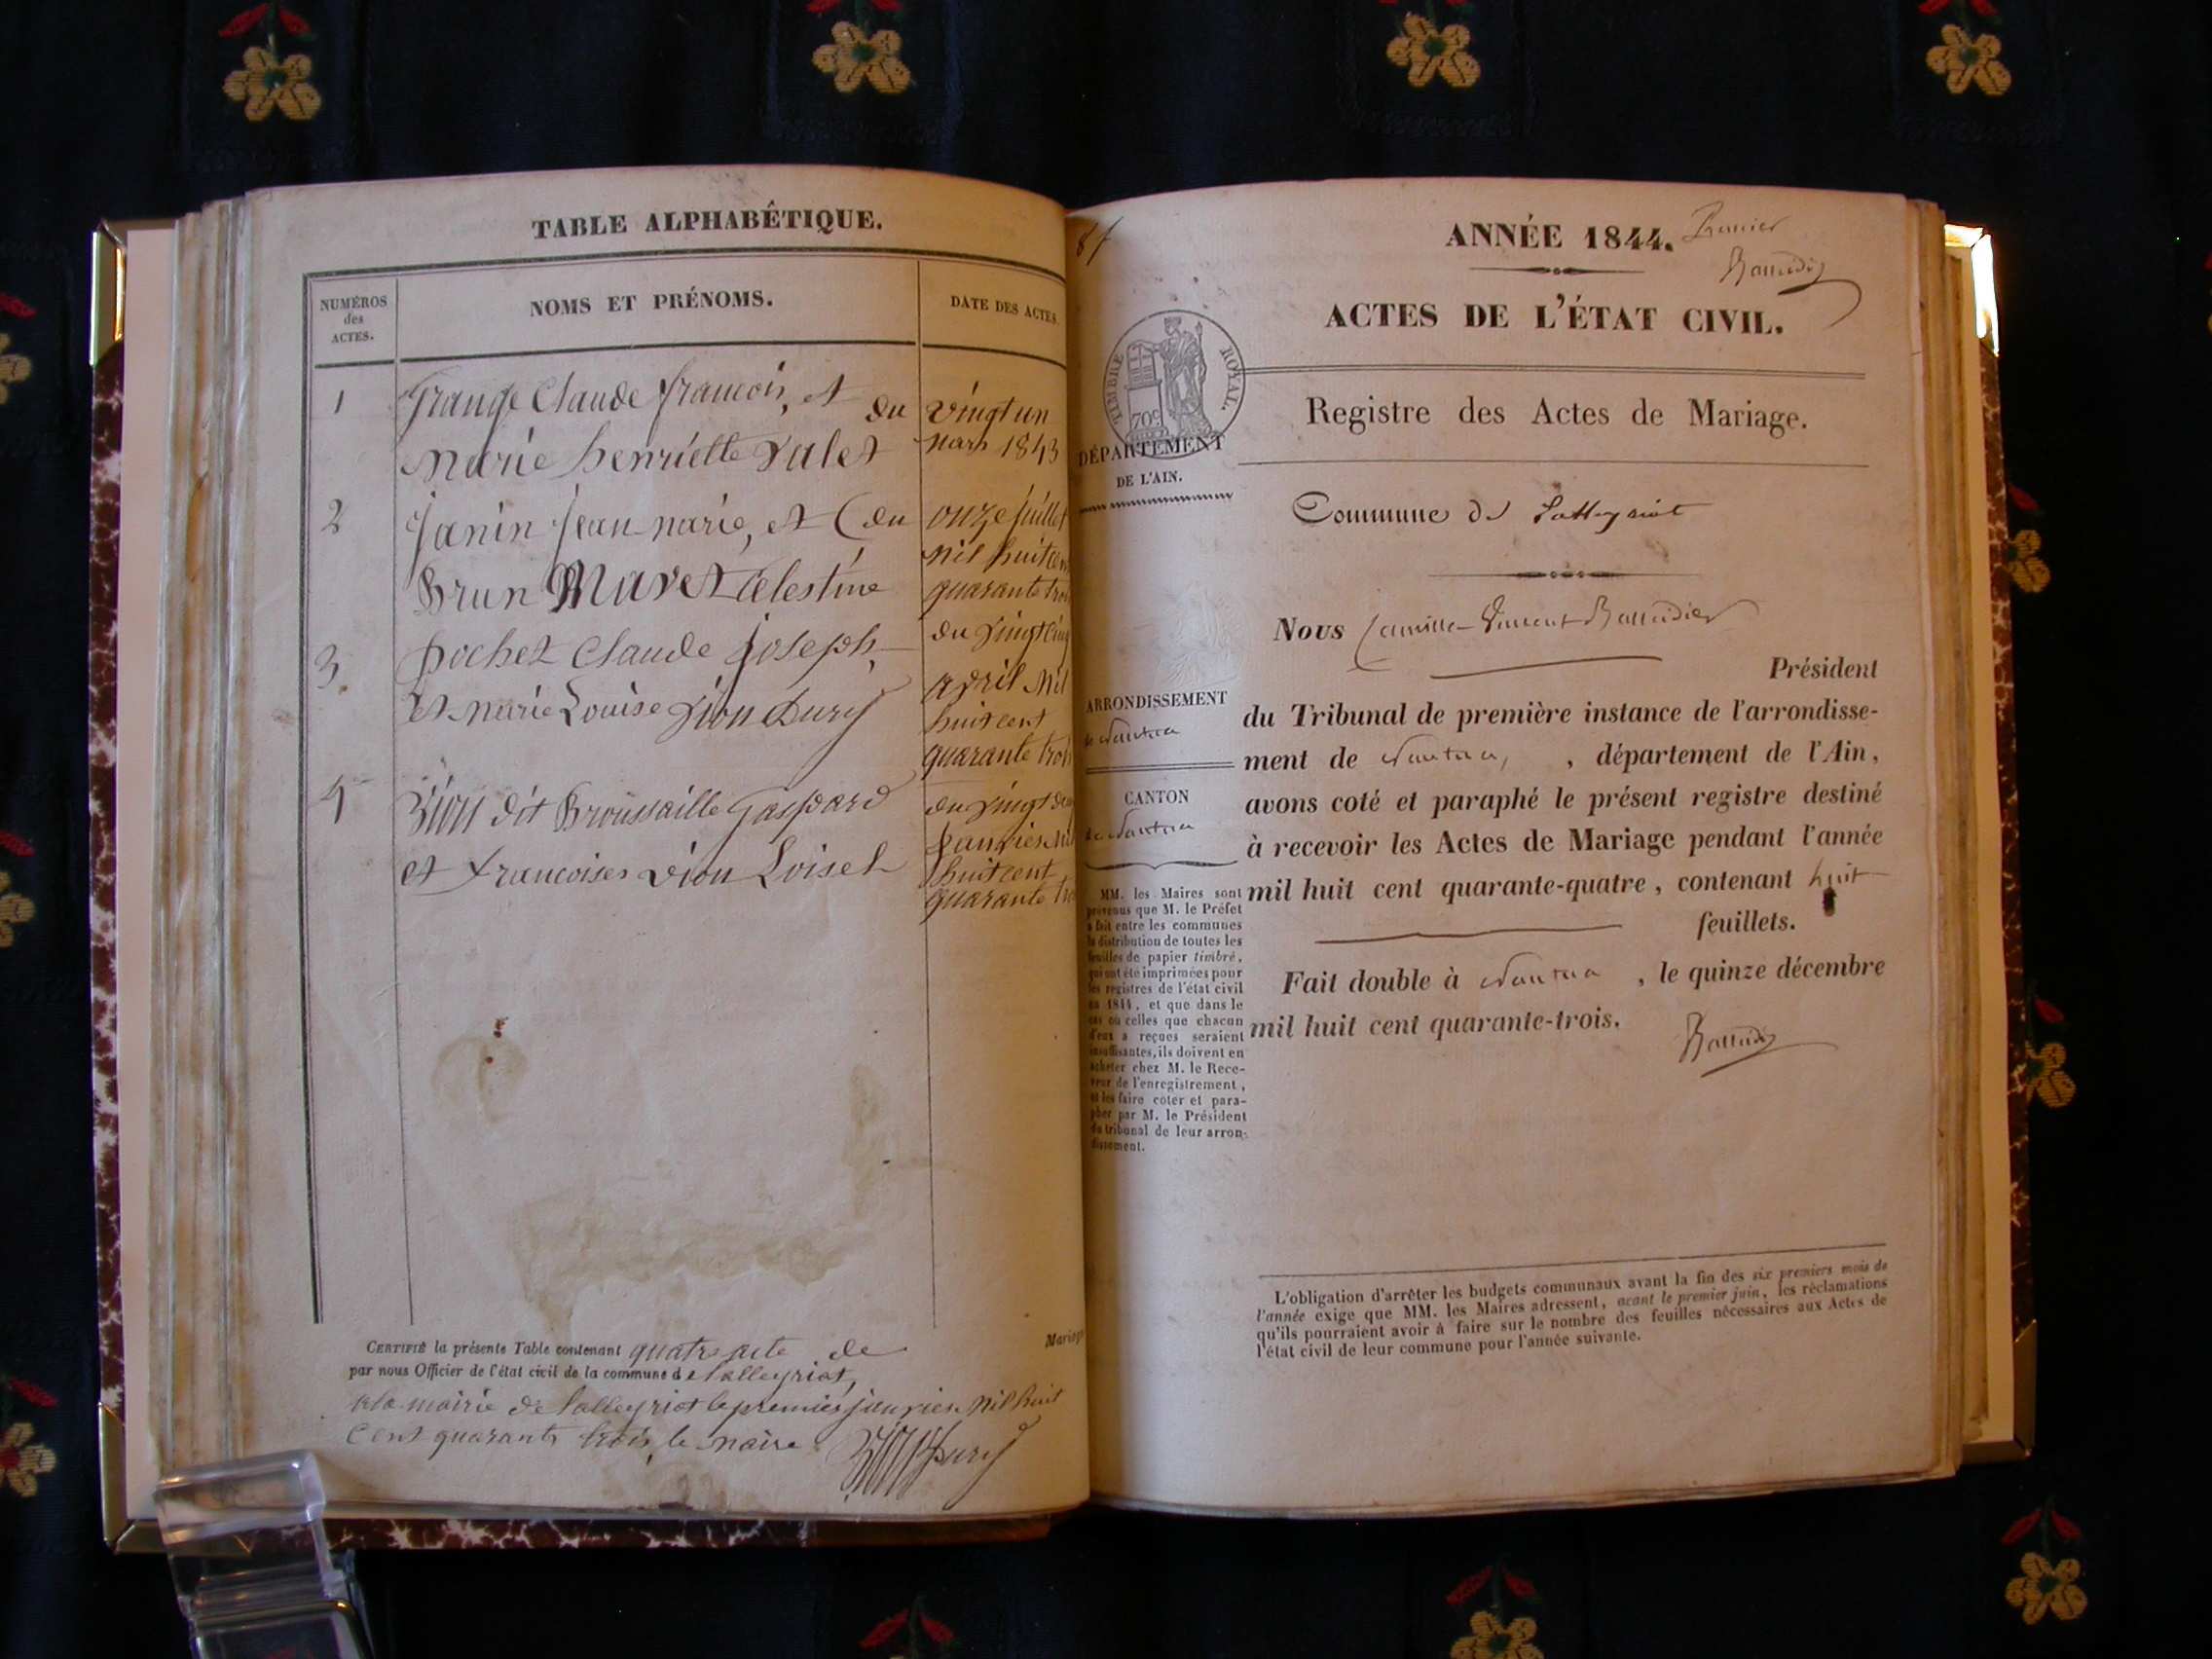 TABLE ALPHABÉTIQUE.
NUMÉROS
des
ACTES.
NOMS ET PRÉNOMS.
DATE DES ACTES.
1
Grange Claude francois, et du
vingt un
mars 1843
Marie henriette
2
Janin Jean marie, et (du
onze juillet
mil huit cen
Brun Muret Celestine
quarante troi
3.
Pochet Claude Joseph
du vingt cinq
avril mil
et marie Louise Vion Dury
huit cent
quarante troi
4
Vion dit Broussaille Gaspard
du vingt
Janvier Mil
et francoises Vion Loisel
huit cent
quarante tro
CERTIFIÉ la présente Table contenant quatre acte de
Mariage
par nous Officier de l'état civil de la commune de Lalleyriat,
a la mairie de Lalleyriat le premier janvier mil huit
cent quarante trois, le maire Vion Dury
ANNÉE 1844. Premier
ACTES DE L'ÉTAT CIVIL.
TIMBRE ROYAL.
70c
Registre des Actes de Mariage.
DÉPARTEMENT
DE L'AIN.
Commune de Lalleyriat
Nous Camille Vincent
Président
ARRONDISSEMENT
de Nantua
CANTON
de Nantua
du Tribunal de première instance de l'arrondisse-
ment de Nantua, , département de l'Ain,
avons coté et paraphé le présent registre destiné
à recevoir les Actes de Mariage pendant l'année
mil huit cent quarante-quatre, contenant huit
feuillets.
Fait double à Nantua , le quinze décembre
mil huit cent quarante-trois.
MM. les Maires sont
prévenus que M. le Préfet
a fait entre les communes
la distribution de toutes les
feuilles de papier timbré,
qui ont été imprimées pour
les registres de l'état civil
en 1844, et que dans le
cas où celles que chacun
d'eux a reçues seraient
insuffisantes, ils doivent en
acheter chez M. le Rece-
veur de l'enregistrement,
et les faire coter et para-
pher par M. le Président
du tribunal de leur arron-
dissement.
L'obligation d'arrêter les budgets communaux avant la fin des six premiers mois de
l'année exige que MM. les Maires adressent, avant le premier juin, les réclamations
qu'ils pourraient avoir à faire sur le nombre des feuilles nécessaires aux Actes de
l'état civil de leur commune pour l'année suivante.